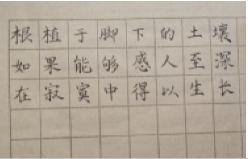 根植于脚下的土壤
如果能够感人至深
在寂寞中得以生长